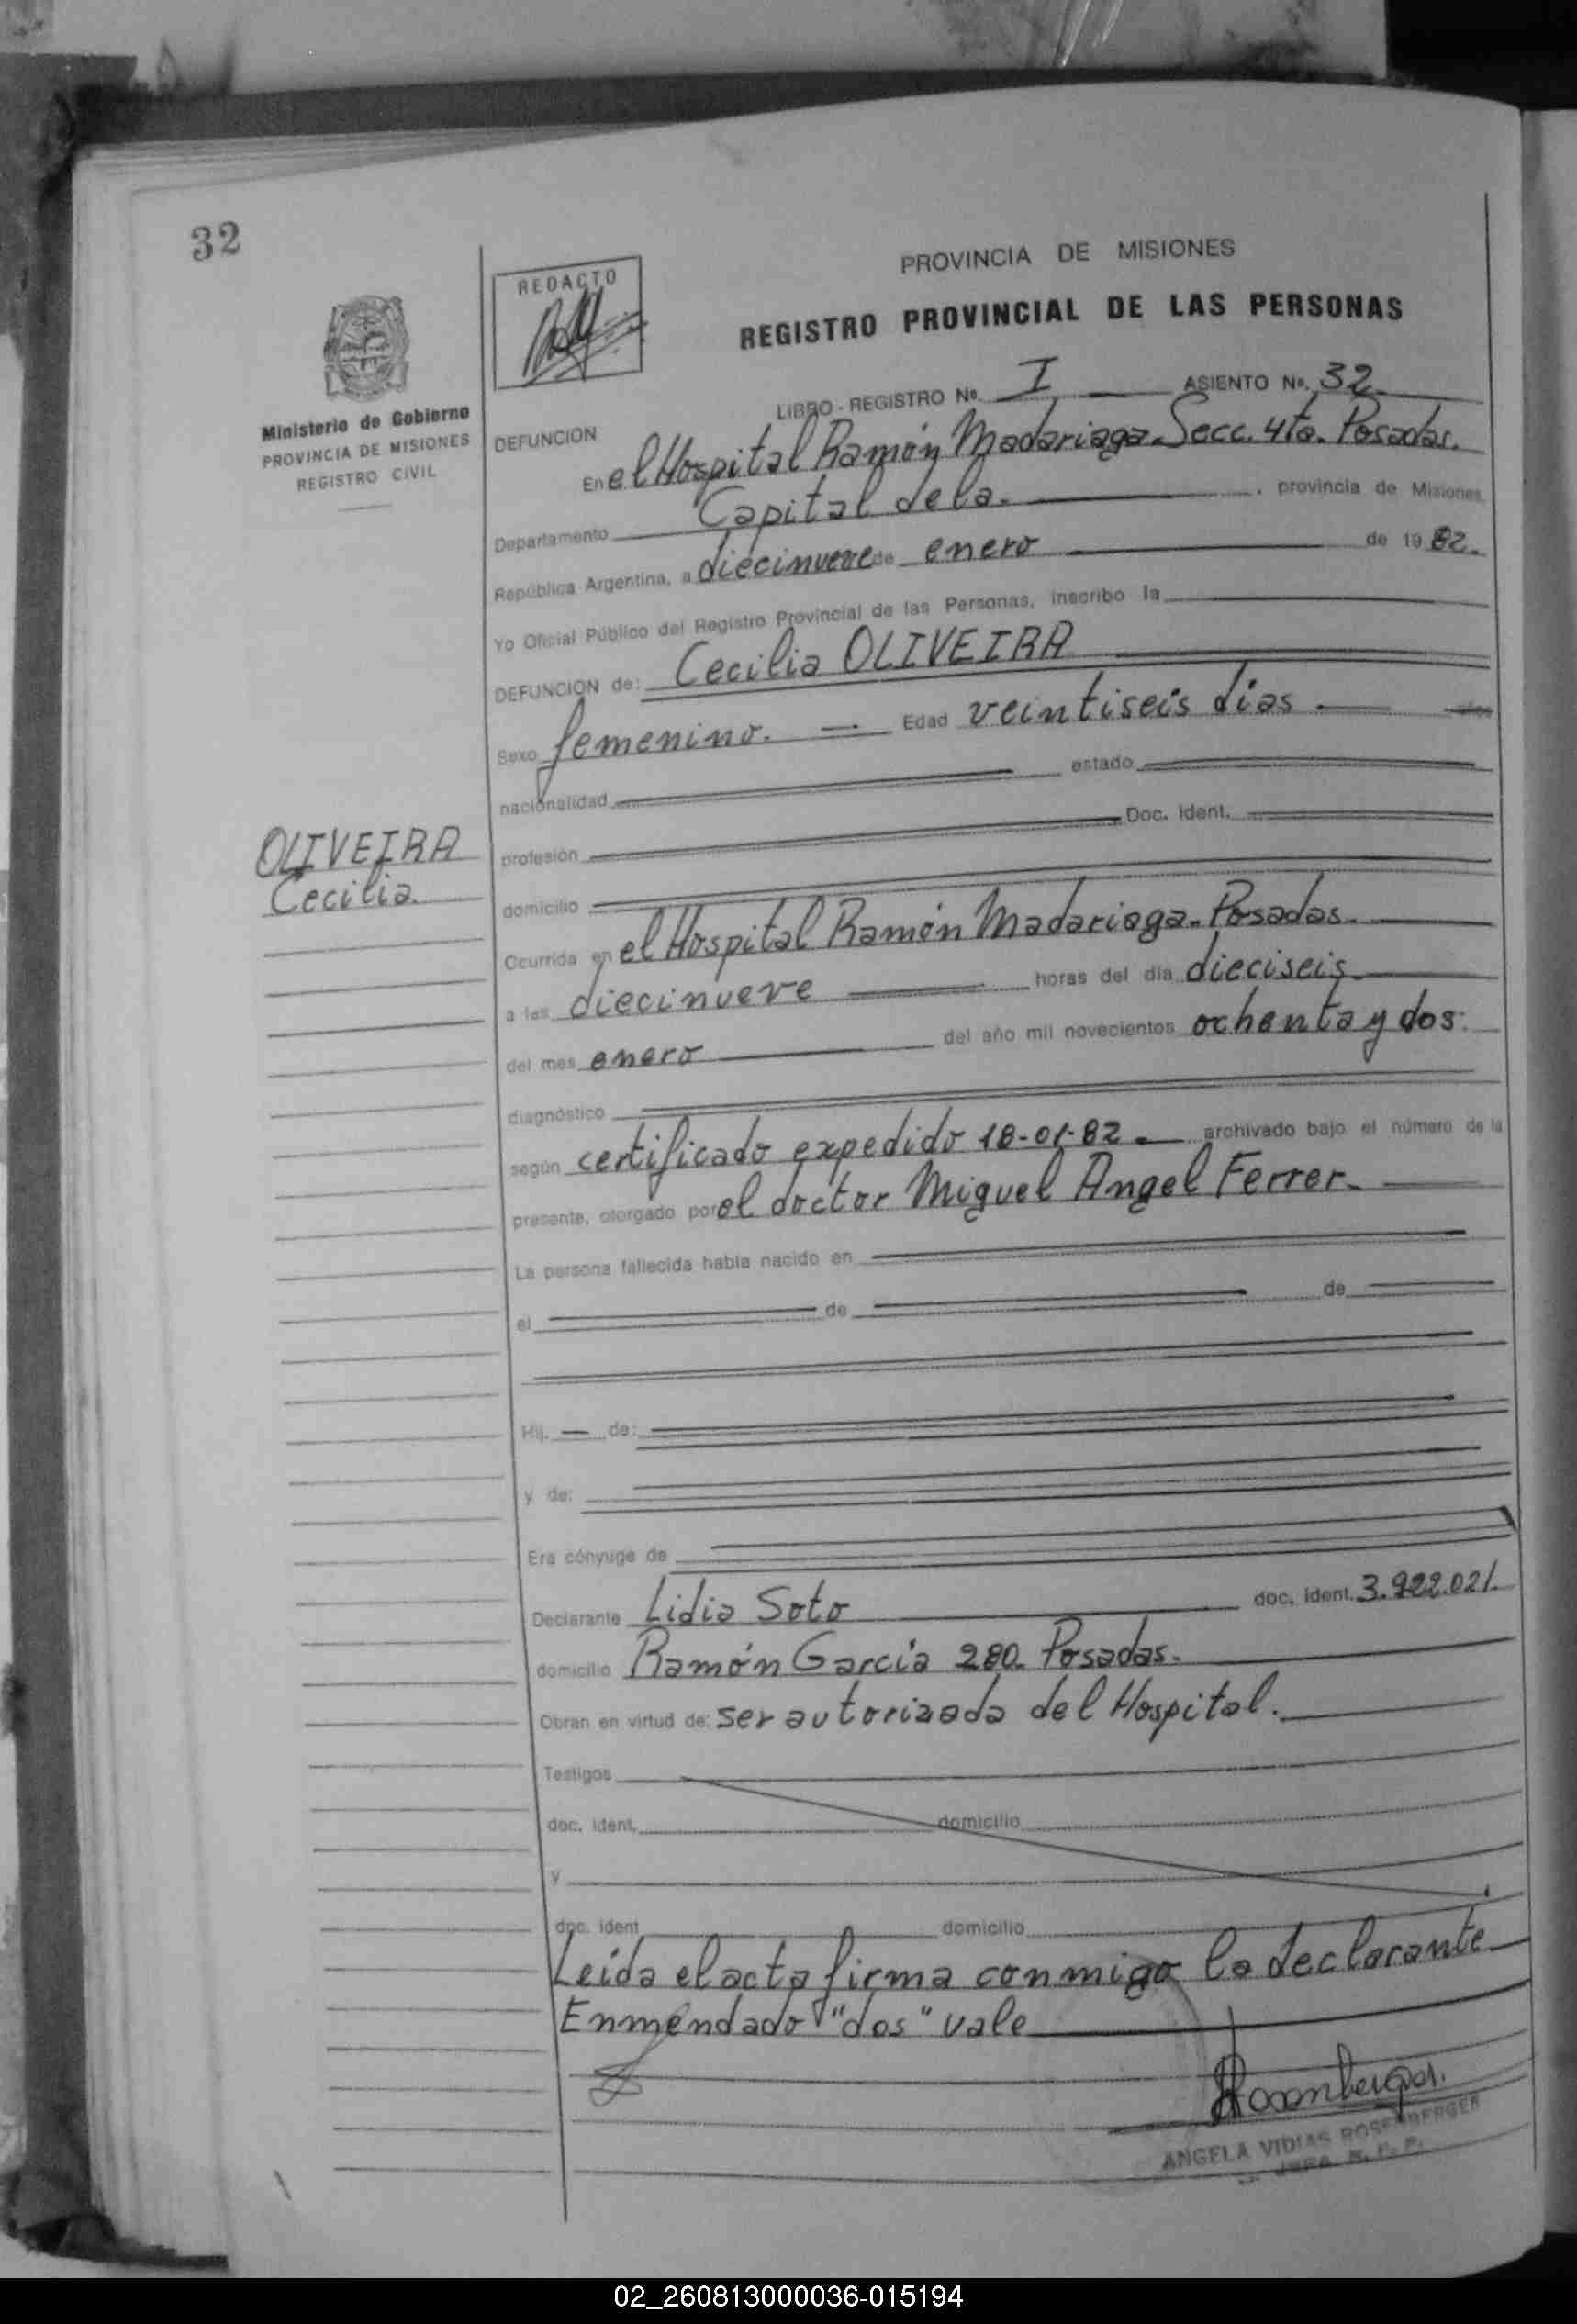 32
REDACTO
PROVINCIA DE MISIONES
REGISTRO PROVINCIAL DE LAS PERSONAS
Ministerio de Gobierno
PROVINCIA DE MISIONES
REGISTRO CIVIL
LIBRO - REGISTRO Nº I ASIENTO Nº. 32
DEFUNCION
En el Hospital Ramón Madariaga. Secc. 4ta. Posadas.
Departamento Capital de la. , provincia de Misiones,
República Argentina, a diecinueve de enero de 1982.
Yo Oficial Público del Registro Provincial de las Personas, inscribo la
DEFUNCION de: Cecilia OLIVEIRA
Sexo femenino. Edad veintiseis dias
nacionalidad estado
OLIVEIRA
Cecilia.
profesión Doc. Ident.
domicilio
Ocurrida en el Hospital Ramón Madariaga. Posadas.
a las diecinueve horas del día dieciseis
del mes enero del año mil novecientos ochenta y dos.
diagnóstico
según certificado expedido 18-01-82 archivado bajo el número de la
presente, otorgado por el doctor Miguel Angel Ferrer.
La persona fallecida había nacido en
el de de
Hij. de:
y de:
Era cónyuge de
Declarante Lidia Soto doc. ident. 3.922.021.
domicilio Ramón García 280. Posadas.
Obran en virtud de: ser autorizada del Hospital.
Testigos
doc. ident. domicilio
y
doc. ident domicilio
Leída el acta firma conmigo la declarante
Enmendado "dos" vale
Rosenberger.
ANGELA VIDIAS ROSENBERGER
JEFA R. P. P.
02_260813000036-015194